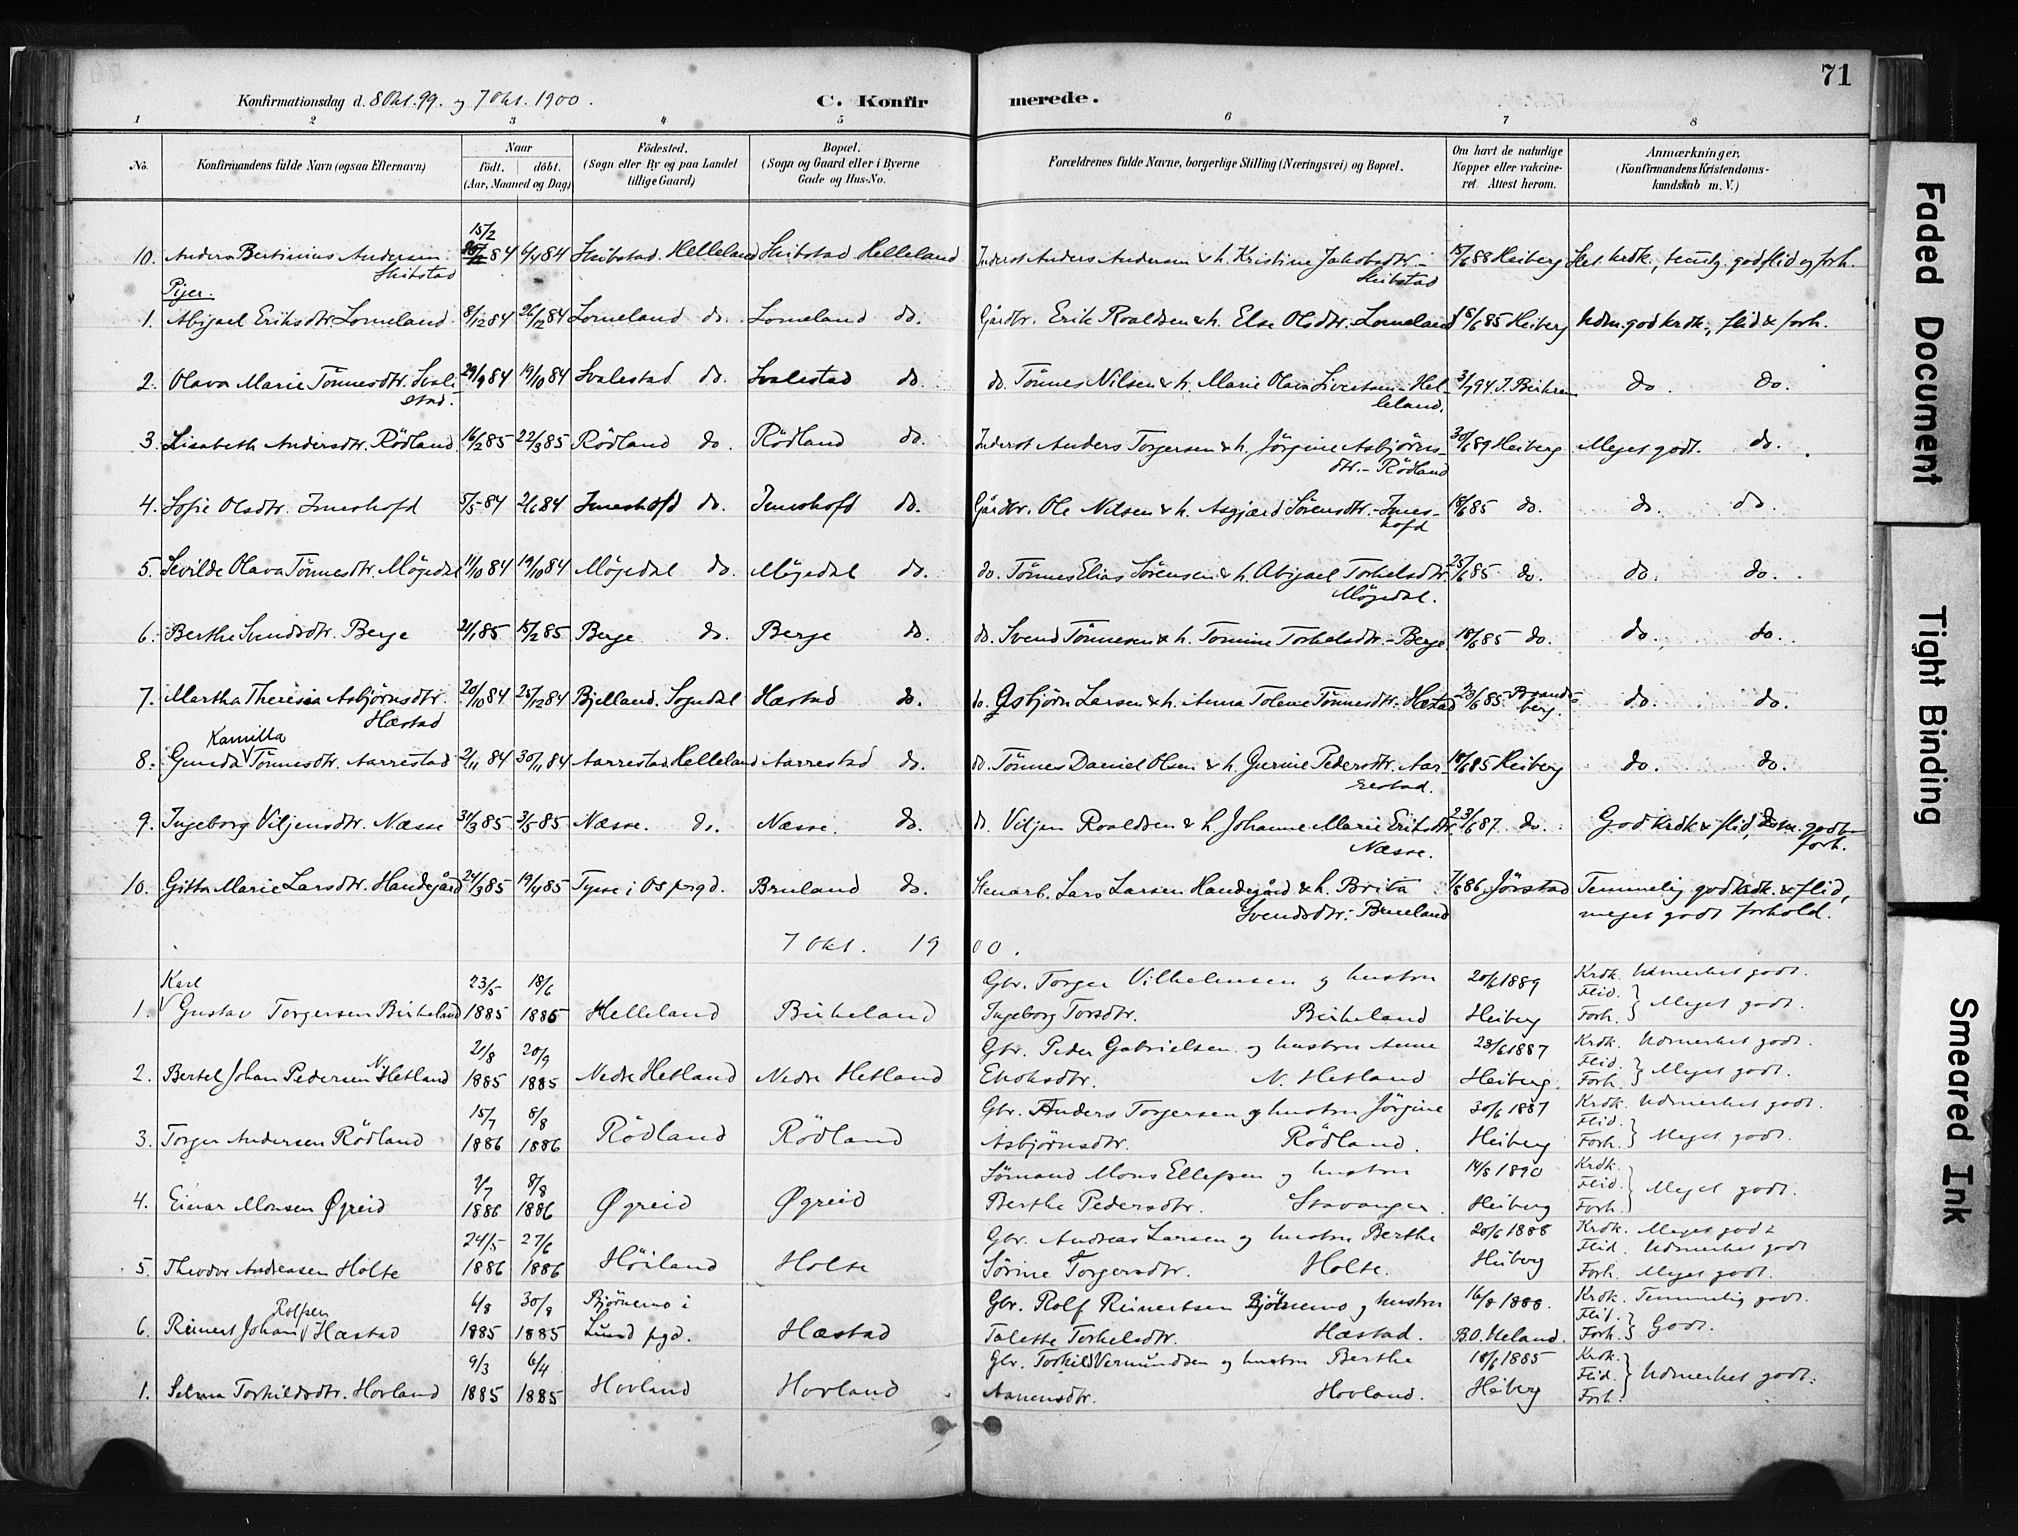 71
Konfirmationsdag d. 8 Okt. 99. og 7 Okt. 1900.
C. Konfirmerede.
1 2 3 4 5 6 7 8
No.
Konfirmandens fulde Navn (ogsaa Efternavn)
Naar
födt. döbt.
(Aar, Maaned og Dag)
Födested.
(Sogn eller By og paa Landet
tillige Gaard)
Bopæl.
(Sogn og Gaard eller i Byerne
Gade og Hus-No.
Forældrenes fulde Navne, borgerlige Stilling (Næringsvei) og Bopæl.
Om havt de naturlige
Kopper eller vakcine-
ret. Attest herom.
Anmærkninger,
(Konfirmandens Kristendoms-
kundskab m. V.)
15/2
10. Anders Bertinius Andersen 84 6/4 84 Skibstad Helleland Skibstad Helleland Inderst Anders Andersen & h. Kristine Jakobsdtr.- 15/6 88 Heiberg krdk., temlg. god flid og forh.
Skibstad Skibstad
Piger.
1. Abigael Eriksdtr. Lomeland 8/12 84 26/12 84 Lomeland do. Lomeland do. Gårdbr. Erik Roaldsen & h. Else Olsdtr. Lomeland 18/6 85 Heiberg Udm. god krdk., flid & forh.
2. Olava Marie Tönnesdtr. Svale- 29/9 84 19/10 84 Svalestad do. Svalestad do. do. Tönnes Nilsen & h. Marie Olava Sivertsen-Hel- 3/7 94 J. Birkrem do. do.
stad. leland.
3. Lisabeth Andersdtr. Rödland. 16/2 85 22/3 85 Rödland do. Rödland do. Inderst Anders Torgersen & h. Jörgine Asbjörns- 30/6 89 Heiberg Meget godt. do.
dtr.- Rödland
4. Sofie Olsdtr. Imeshofd 5/5-84 2/6 84 Imeshofd do. Imeshofd do. Gårdbr. Ole Nilsen & h. Asgjærd Sörensdtr.-Imes- 18/6 85 do. do. do.
hofd
5. Sevilde Olava Tönnesdtr. Mögedal 11/10 84 19/10 84 Mögedal do. Mögedal do. do. Tönnes Elias Sörensen & h. Abigael Torkelsdtr. 25/6 85 do. do. do.
Mögedal.
6. Berthe Svendsdtr. Berge 21/1 85 15/2 85 Berge do. Berge do. do. Svend Tönnesen & h. Tomine Torkelsdtr.- Berge 18/6 85 do. do. do.
7. Martha Theresia Asbjörnsdtr. 20/10 84 25/12 84 Bjelland. Sogndal Hæstad do. do. Asbjörn Larsen & h. Anna Tolene Tönnesdtr. Hæstad 23/6 85 Brands- do. do.
Hæstad berg.
Kamilla
8. Gunda Tönnesdtr. Aarrestad 2/11 84 30/11 84 Aarrestad. Helleland Aarrestad do. do. Tönnes Daniel Olsen & h. Gurine Pedersdtr. Aar- 18/6 85 Heiberg do. do.
restad.
9. Ingeborg Viljensdtr. Næsse 31/3 85 3/5 85 Næsse. do. Næsse. do. do. Viljen Roaldsen & h. Johanne Marie Eriksdtr. 23/6 87 do. God krdk & flid, godt
Næsse. forh.
10. Gitta Marie Larsdtr. Handegård 24/3 85 19/4 85 Tysse i Os prgd. Bruland do. Stenarb. Lars Larsen Handegård & h. Brita 7/8 86 Jörstad Temmelig god krdk. & flid,
Svendsdtr.- Brueland meget godt forhold.
7 Okt. 1900.
Karl 23/5 18/6 Gbr. Torger Vilhelmsen og hustru 20/6 1889 Krdk. Udmerket godt.
1. Gustav Torgersen Birkeland 1885 1885 Helleland Birkeland Ingeborg Torsdtr. Birkeland Heiberg Flid. Forh. } Meget godt.
21/8 20/9 Gbr. Peder Gabrielsen og hustru Anne 23/6 1887 Krdk. Udmerket godt.
2. Bertel Johan Pedersen N. Hetland 1885 1885 Nedre Hetland Nedre Hetland Enoksdtr. N. Hetland Heiberg. Flid. Forh. } Meget godt.
15/7 8/8 Gbr. Anders Torgersen og hustru Jörgine 30/6 1887 Krdk. Udmerket godt.
3. Torger Andersen Rödland 1886 1886 Rödland Rödland Asbjörnsdtr. Rödland. Heiberg Flid. Forh. } Meget godt.
7/7 8/8 Sömand Mons Ellefsen og hustru 14/8 1890 Krdk.
4. Einar Monsen Øgreid 1886 1886 Øgreid Øgreid Berthe Pedersdtr. Stavanger. Heiberg Flid. Forh. } Meget godt.
24/5 27/6 Gbr. Andreas Larsen og hustru Berthe 20/6 1888 Krdk. Meget godt
5. Theodor Andreasen Holte 1886 1886 Höiland Holte Sörine Torgersdtr. Holte. Heiberg Flid. Udmerket godt
Forh. Meget godt.
Rolfsen 6/8 30/8 Bjørnemo i Gbr. Rolf Reinertsen Bjørnemo og hustru 16/8 1888. Krdk. Temmelig godt.
6. Reinert Johan Hæstad 1885 1885 Lund pgd. Hæstad Talette Torkelsdtr. Hæstad. B.O. Ueland. Flid. Forh. } Godt.
9/3 6/4 Gbr. Torkild Vermundsen og hustru Berthe 18/6 1885 Krdk.
1. Selma Torkildsdtr. Hovland 1885 1885 Hovland Hovland Aanensdtr. Hovland. Heiberg Flid. Forh. } Udmerket godt.
Faded Document
Tight Binding
Smeared Ink